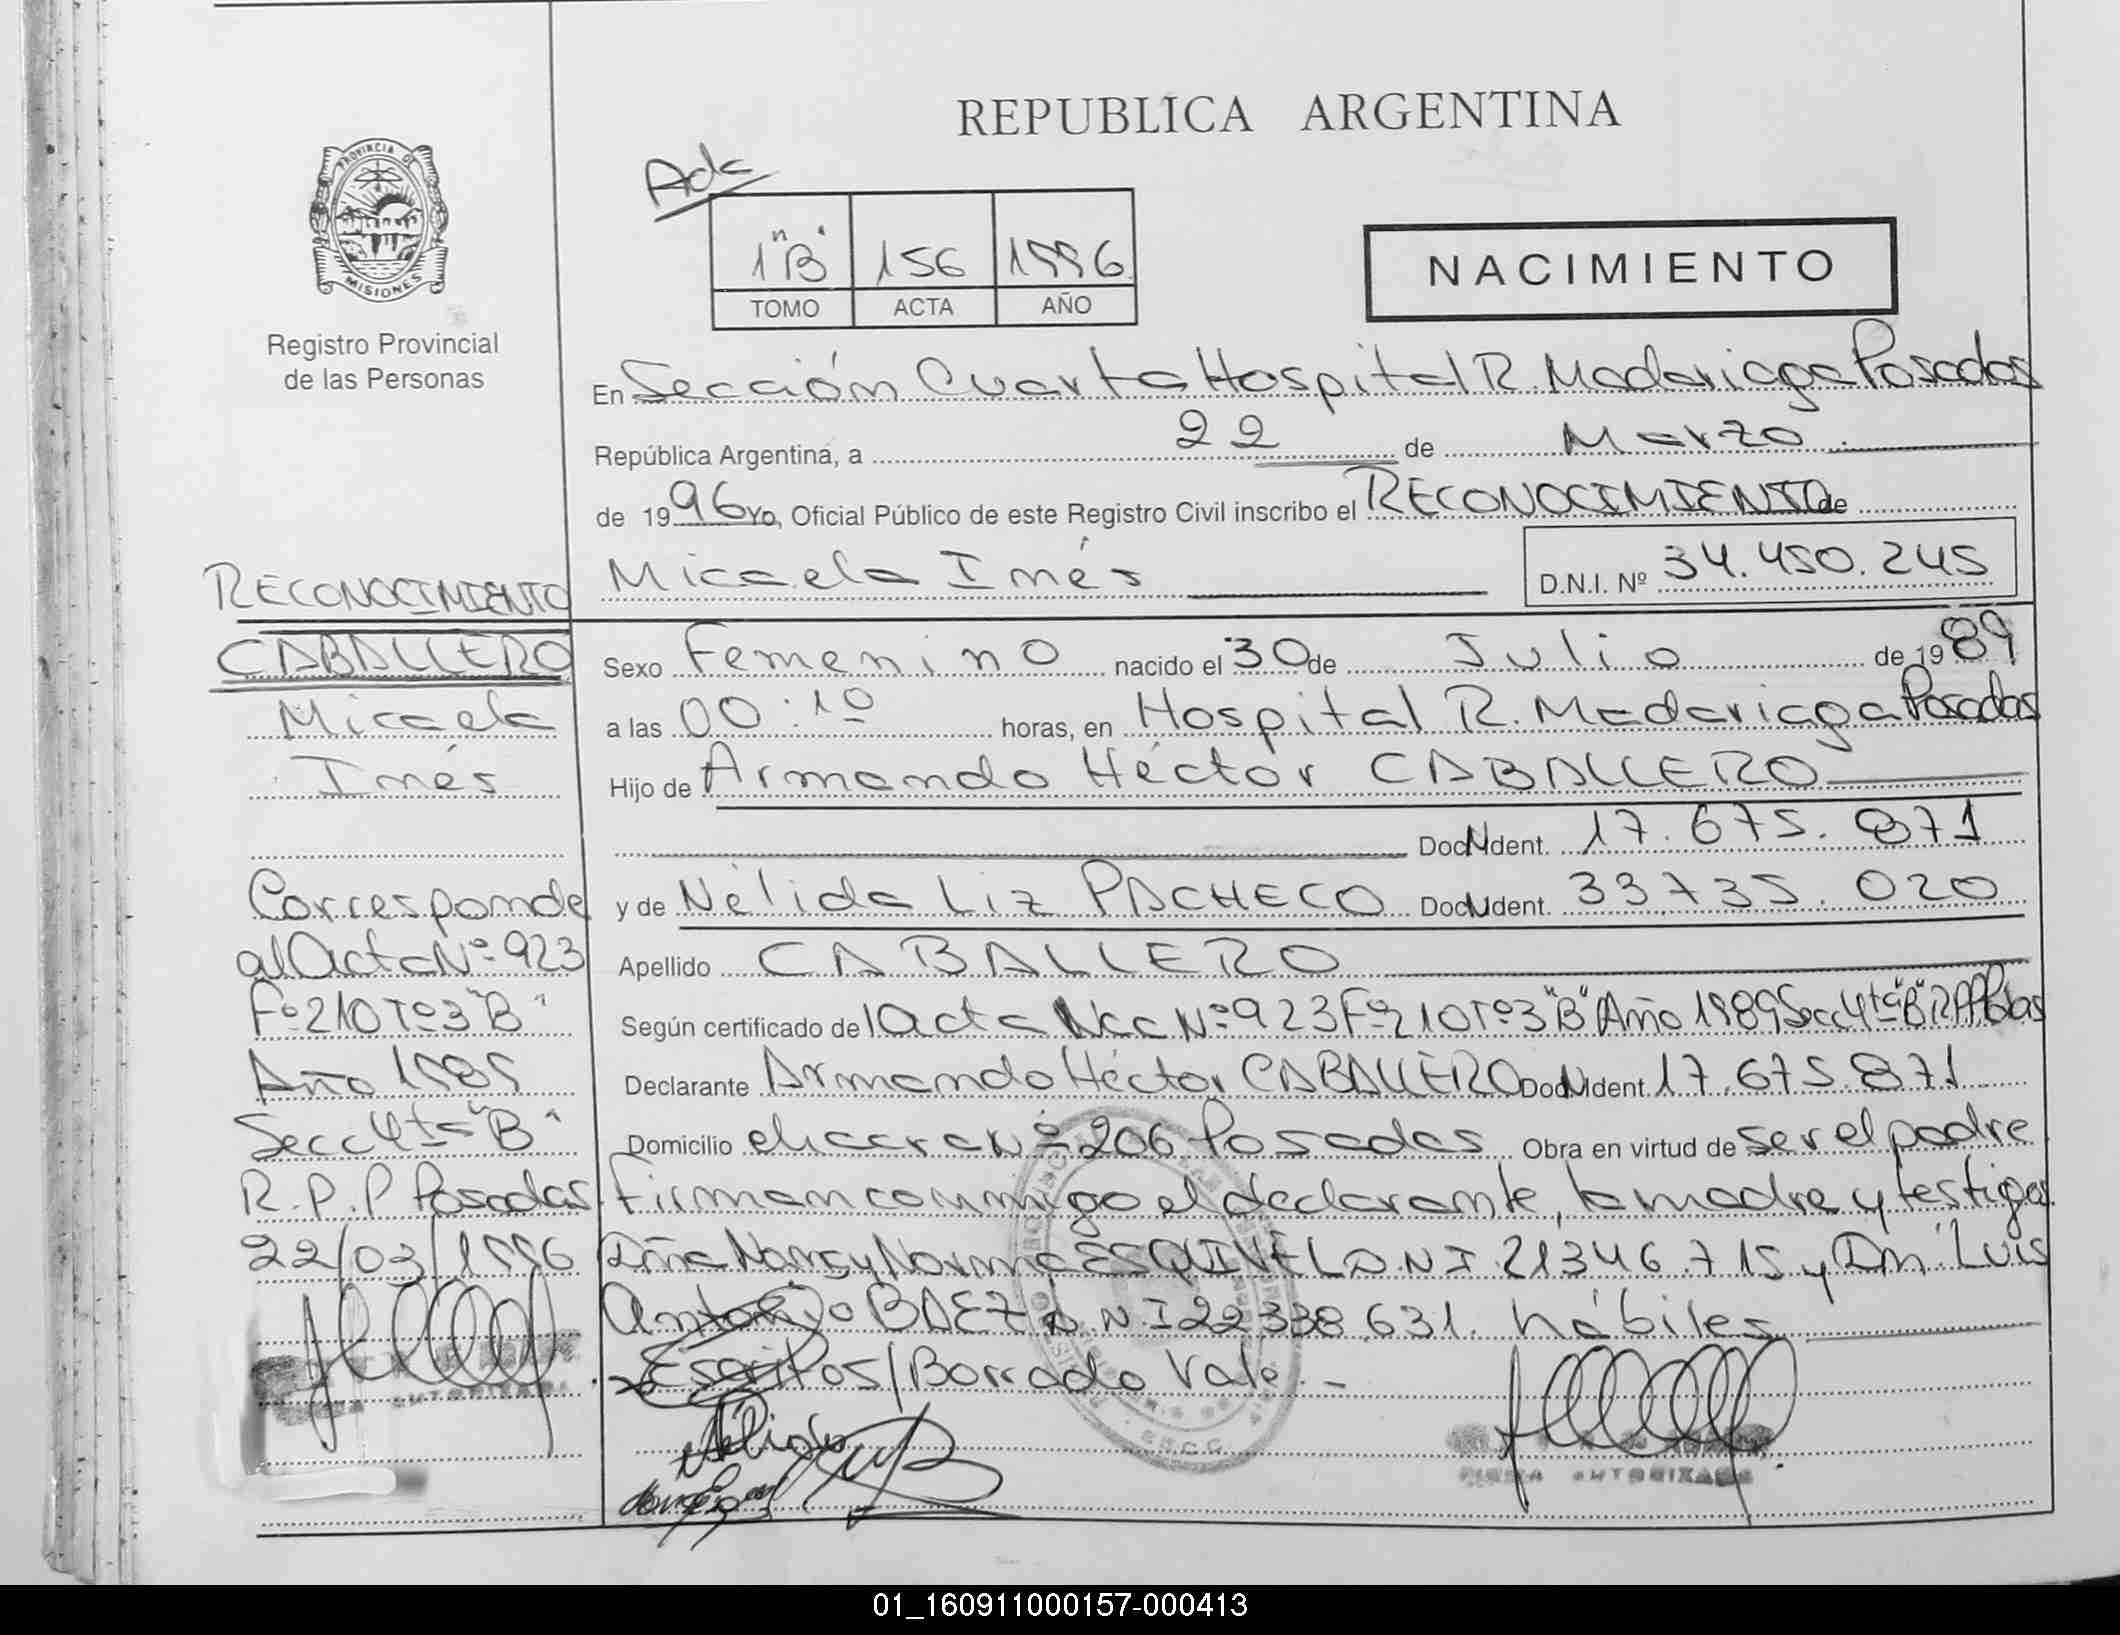 REPUBLICA ARGENTINA
PROVINCIA DE
MISIONES
Registro Provincial
de las Personas
Adc
1 "B" 156 1996
TOMO ACTA AÑO
NACIMIENTO
En Sección Cuarta Hospital R. Madariaga Posadas
República Argentina, a 22 de Marzo
de 1996 Yo, Oficial Público de este Registro Civil inscribo el RECONOCIMIENTO de
Micaela Inés D.N.I. Nº 34.450.245
Sexo Femenino nacido el 30 de Julio de 1989
a las 00:10 horas, en Hospital R. Madariaga Posadas
Hijo de Armando Héctor CABALLERO
Doc. Ident. 17.675.871
y de Nélida Liz PACHECO Doc. Ident. 33735.020
Apellido CABALLERO
Según certificado de l Acta Nac Nº 923 Fº 210 Tº 3 "B" Año 1989 Secc 4ta "B"
Declarante Armando Héctor CABALLERO Doc. Ident. 17.675.871
Domicilio chacra Nº 206 Posadas Obra en virtud de ser el padre
Firman conmigo el declarante, la madre y testigos
Dña Nancy Norma ESQUIVEL D.N.I 21346.715 y Dn. Luis
Antonio BAEZ D.N.I 22338.631. hábiles
Escritos/Borrado Vale. -
Nélida
FIRMA AUTORIZADA
RECONOCIMIENTO
CABALLERO
Micaela
Inés
Corresponde
al Acta Nº 923
Fº 210 Tº 3 "B"
Año 1989
Secc 4ta "B"
R.P.P Posadas
22/03/1996
AUTORIZADA
01_160911000157-000413